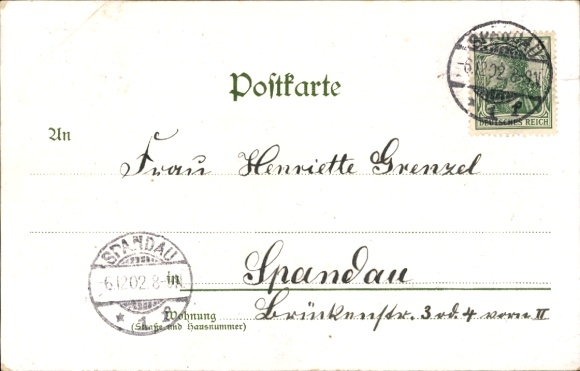 SPANDAU
6.12.02.8-9N.
* 1 f
DEUTSCHES REICH
Postkarte
An
Frau Henriette Grenzel
SPANDAU
-6.12.02.8-9N.
* 1 f
in Spandau
Wohnung Brückenstr. 3 od. 4 vorn II
(Straße und Hausnummer)